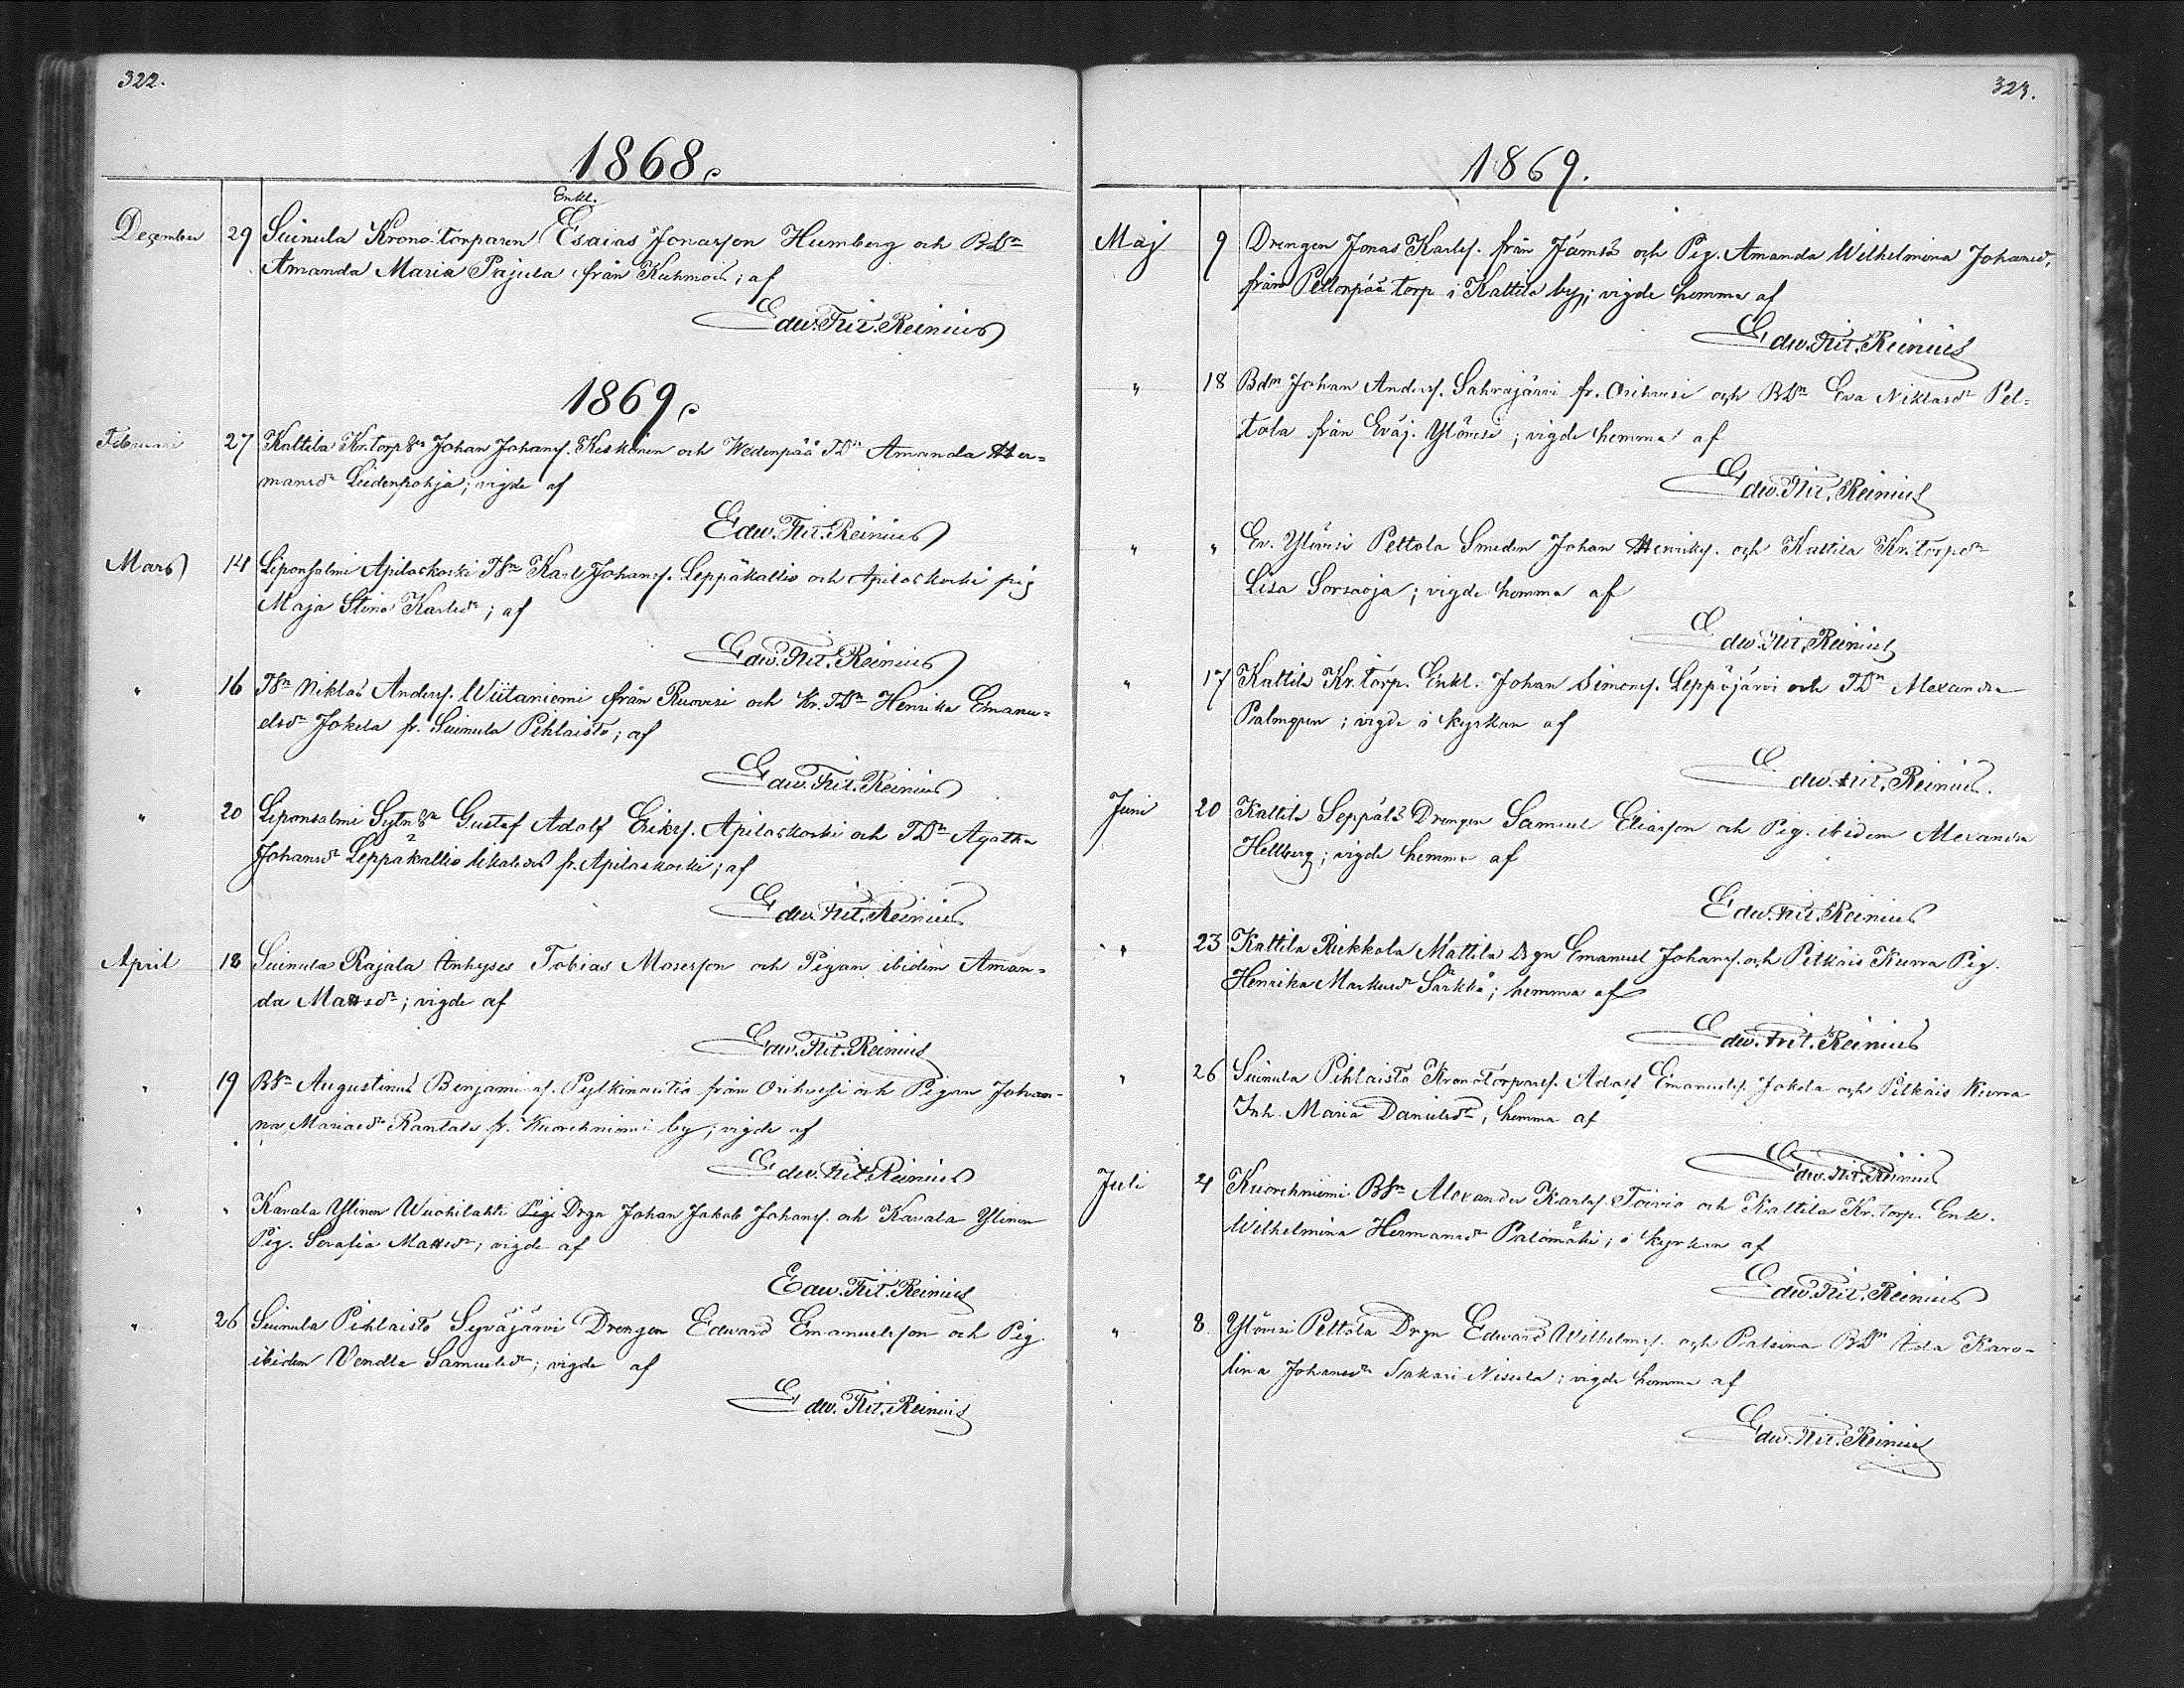 322.
1868.
Enkl.
December 29 Suinula Krono-torparen Esaias Jonasson Humberg och BDn
Amanda Maria Pajula från Kuhmois; af
Edw. Frit. Reinius
1869.
Februari 27 Kaltila Kr. torpSn Johan Johansf. Keskinen och Wedenpää TDn Amanda Her=
mansdr Liedenpohja; vigde af
Edw. Frit. Reinius
Mars 14 Liponsalmi Apilaskoski TSn Karl Johansf. Leppäkallio och Apilaskoski pig
Maja Stina Karlsdr; af
Edw. Frit. Reinius
" 16 TSn Niklas Andersf. Wiitaniemi från Ruovesi och Kr. TDn Henrika Emanu=
elsdr Jokela fr. Suinula Pihlaisto; af
Edw. Frit. Reinius
" 20 Liponsalmi SytnSn Gustaf Adolf Eriksf. Apilaskoski och TDn Agatha
Johansdr Leppäkallio fr. Apilaskoski; af
Edw. Frit. Reinius
April 18 Suinula Rajala Inhyses Tobias Mosesson och Pigan ibidem Aman=
da Mattsdr; vigde af
Edw. Frit. Reinius
" 19 BSn Augustinus Benjaminsf. från Orihvesi och Pigan Johan-
na Mariasdr Rantala fr. Kuorehniemi by; vigde af
Edw. Frit. Reinius
" " Karala Ylinen Wuohilahti Pig Drgn Johan Jakob Johansf. och Karala Ylinen
Pig. Serafia Mattsdr; vigde af
Edw. Frit. Reinius
" 26 Suinula Pihlaisto Syväjärvi Drengen Edward Emanuelsson och Pig.
ibidem Vendla Samuelsdr; vigde af
Edw. Frit. Reinius
323.
1869.
Maj 9 Drengen Jonas Karlsf. från Jämsä och Pig. Amanda Wilhelmina Johansd.
från Pellonpää torp i Kaltila by; vigde hemma af
Edw. Frit. Reinius
" 18 Bdn Johan Andersf. Sahrajärvi fr. Orihvesi och BDn Eva Niklasdr Pel=
tola från Eräj. Ylövesi; vigde hemma af
Edw. Frit. Reinius
" " Er. Ylövesi Peltola Smeden Johan Henriksf. och Kaltila Kr. torpdr
Lisa Sorsaoja; vigde hemma af
Edw. Frit. Reinius
" 17 Kaltila Kr. torp. Enkl. Johan Simonsf. Leppäjärvi och TDn Alexandra
Palmgren; vigde i kyrkan af
Edw. Frit. Reinius.
Juni 20 Kaltila Seppälä Drengen Samuel Eliasson och Pig. ibidem Alexandra
Hellberg; vigde hemma af
Edw. Frit. Reinius
" 23 Kaltila Riekkola Mattila Drgn Emanuel Johansf. och Pitkäis Kurra Pig.
Henrika Markusdr Särkkä; hemma af
Edw. Frit. Reinius
" 26 Suinula Pihlaisto Kronotorparsf. Adolf Emanuelsf. Jokela och Pitkäis Kurra
Inh. Maria Danielsdr; hemma af
Edw. Frit. Reinius
Juli 4 Kuorehniemi BSn Alexander Karlsf. Toivio och Kaltila Kr. torp. Enk.
Wilhelmina Hermansdr Palomäki; i kyrkan af
Edw. Frit. Reinius
" 8. Ylövesi Peltola Drgn Edward Wilhelmsf. och Palsina BDn Ida Karo-
lina Johansdr Isakari Nisula; vigde hemma af
Edw. Frit. Reinius